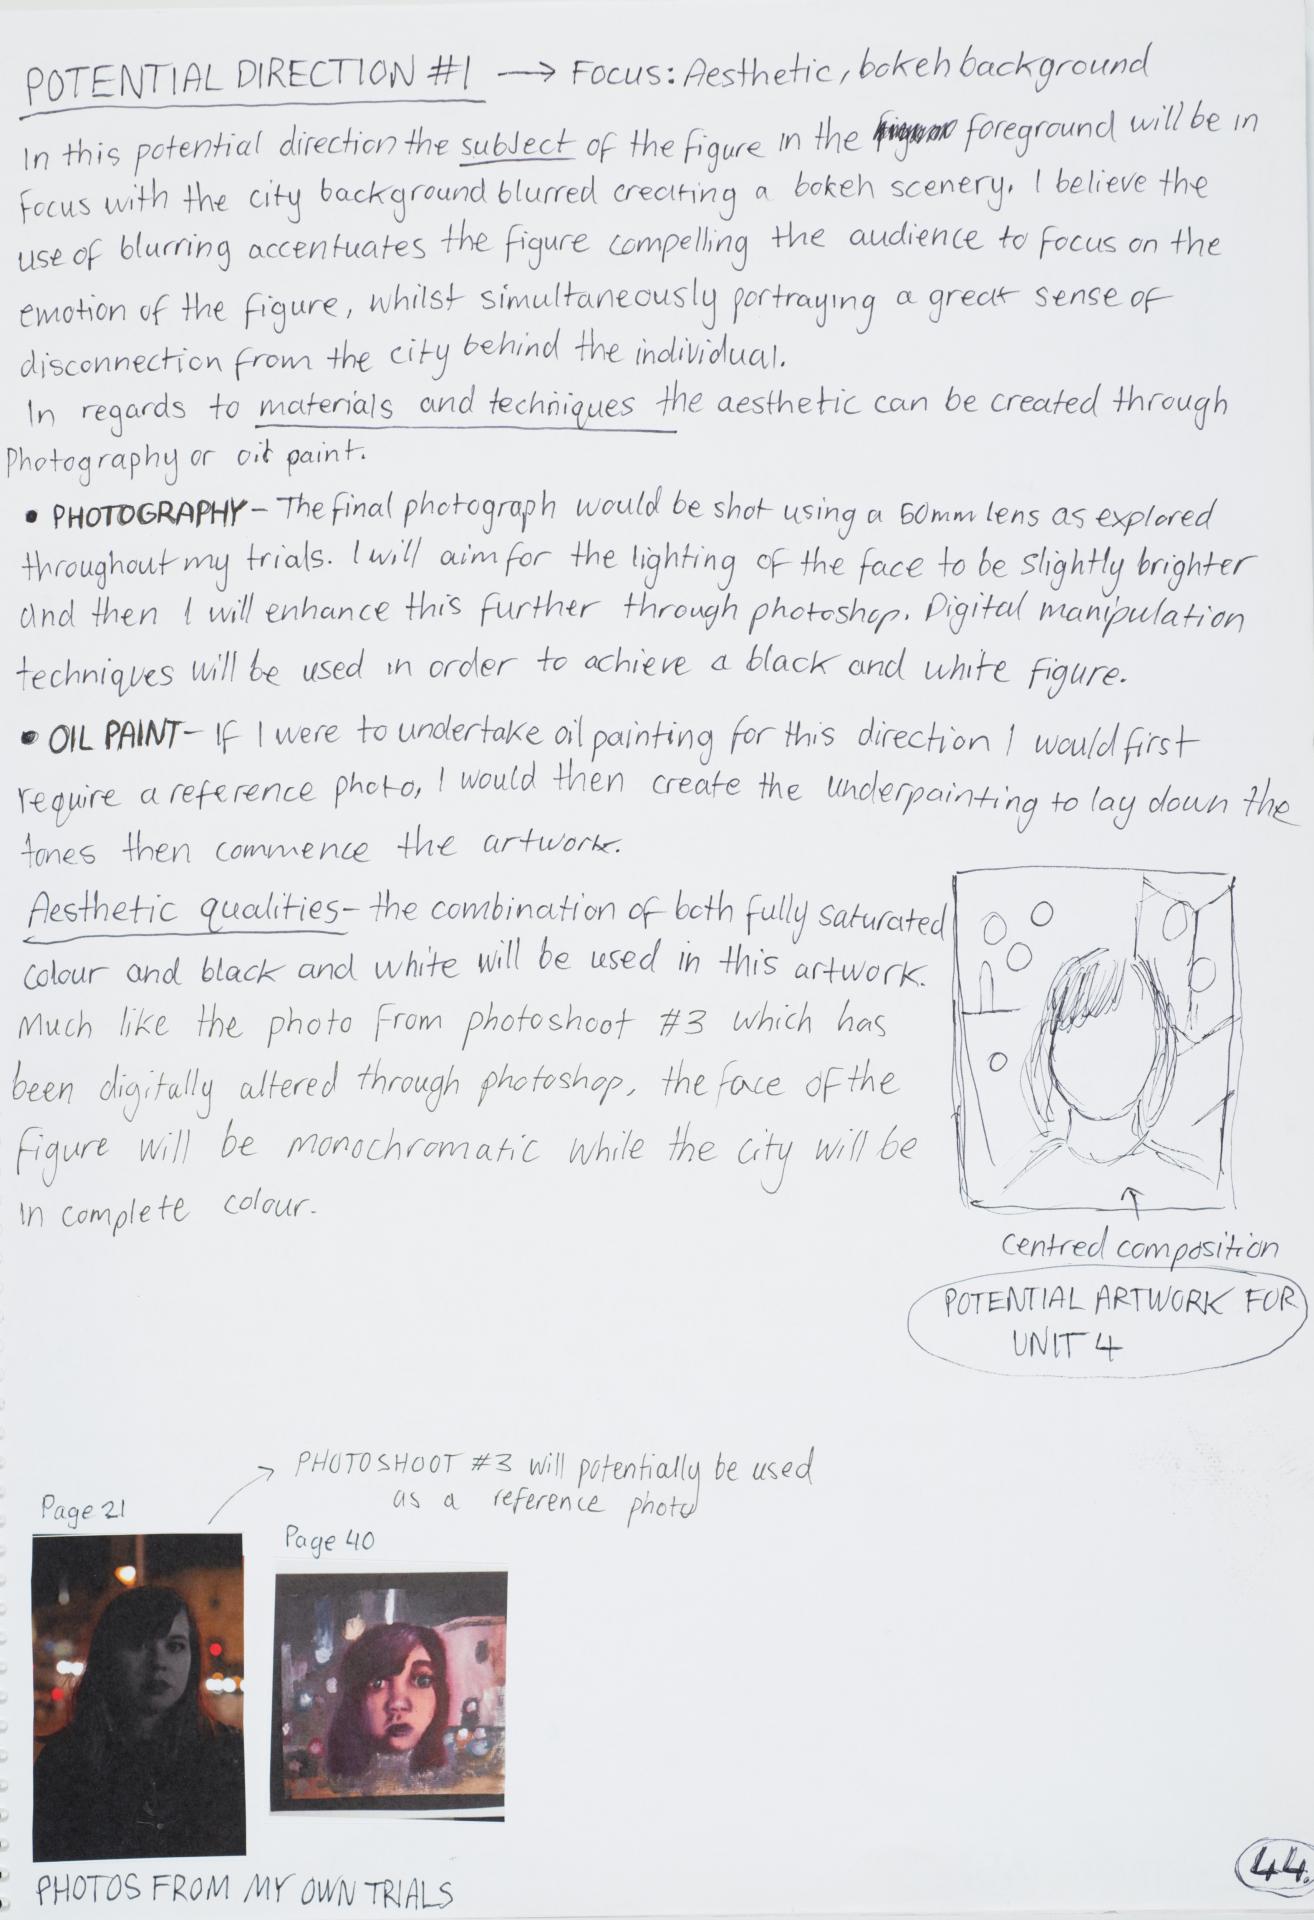 POTENTIAL DIRECTION #1 → Focus: Aesthetic, bokeh background
In this potential direction the subject of the figure in the foreground will be in
focus with the city background blurred creating a bokeh scenery. I believe the
use of blurring accentuates the figure compelling the audience to focus on the
emotion of the figure, whilst simultaneously portraying a great sense of
disconnection from the city behind the individual.
In regards to materials and techniques the aesthetic can be created through
Photography or oil paint.
• PHOTOGRAPHY - The final photograph would be shot using a 50mm lens as explored
throughout my trials. I will aim for the lighting of the face to be slightly brighter
and then I will enhance this further through photoshop. Digital manipulation
techniques will be used in order to achieve a black and white figure.
• OIL PAINT - If I were to undertake oil painting for this direction I would first
require a reference photo, I would then create the underpainting to lay down the
tones then commence the artwork.
Aesthetic qualities - the combination of both fully saturated
colour and black and white will be used in this artwork.
Much like the photo from photoshoot #3 which has
been digitally altered through photoshop, the face of the
figure will be monochromatic while the city will be
in complete colour.
centred composition
POTENTIAL ARTWORK FOR
UNIT 4
PHOTOSHOOT #3 will potentially be used
as a reference photo
Page 21
Page 40
PHOTOS FROM MY OWN TRIALS
44.